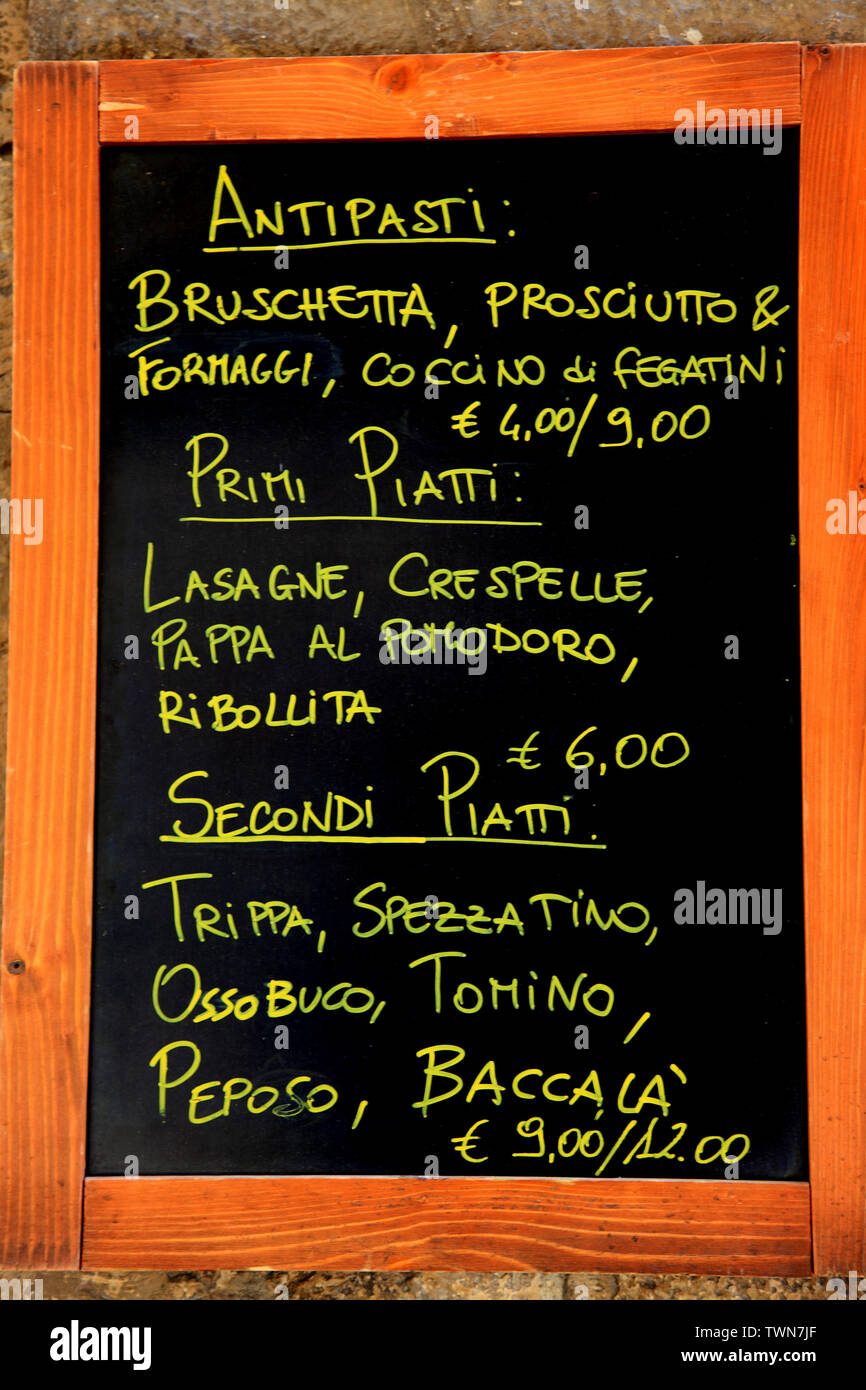 ANTIPASTI:
BRUSCHETTA, PROSCIUTTO &
FORMAGGI, COCCINO di FEGATINI
€ 4,00/9,00
PRIMI PIATTI:
LASAGNE, CRESPELLE,
PAPPA AL POMODORO,
RIBOLLITA
€ 6,00
SECONDI PIATTI:
TRIPPA, SPEZZATINO,
OSSOBUCO, TOMINO,
PEPOSO, BACCALÀ
€ 9,00/12.00
alamy
Image ID: TWN7JF
www.alamy.com